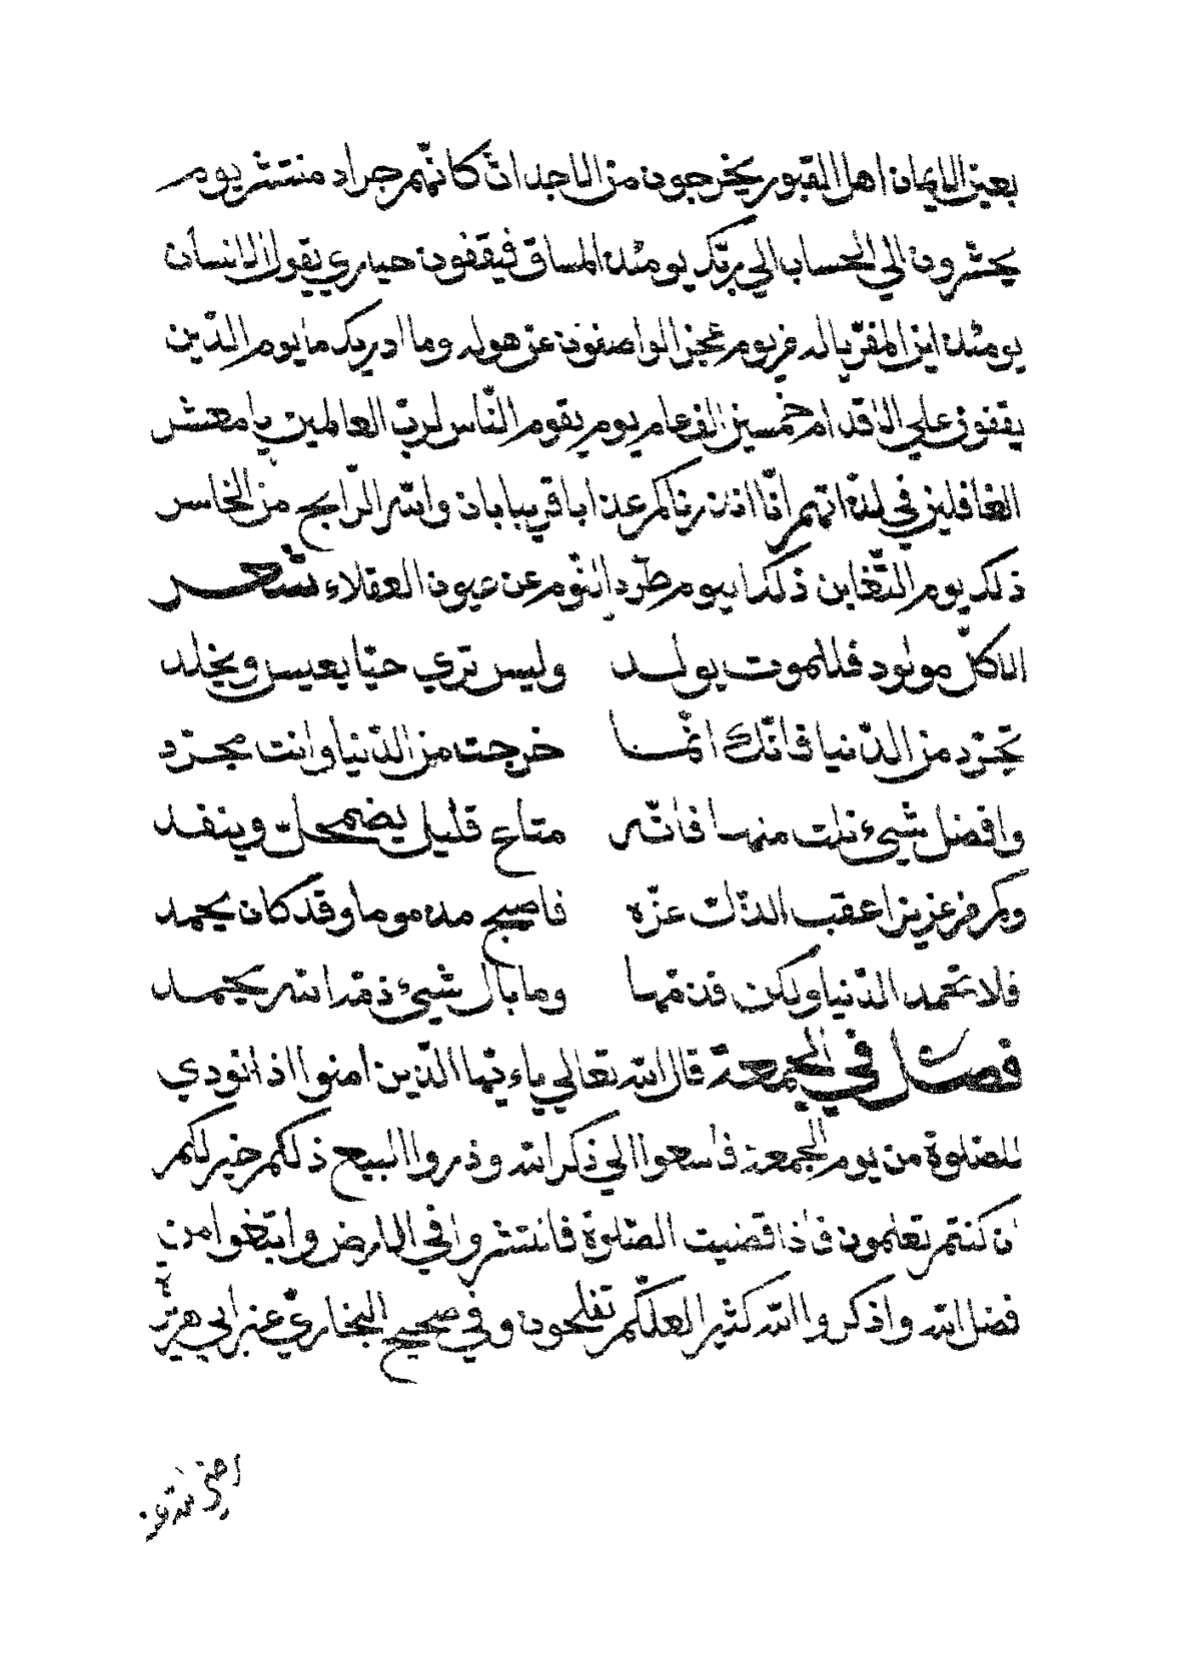 بعين الايمان اهل القبور يخرجون من الاجداث كانّهم جراد منتشر يوم
يحشرون الي الحساب الي ربّك يومئذ المساق فيقفون حياري يقول الانسان
يومئذ اين المفرّ ياله من يوم عجز الواصفون عن هوله وما ادريك ما يوم الدّين
يقفون علي الاقدام خمسين الف عام يوم يقوم النّاس لربّ العالمين يا معشر
الغافلين في لذّاتهم انّا انذرناكم عذابا قريبا بان والله الرّابح من الخاسر
ذلك يوم التّغابن ذلك اليوم طرد النّوم عن عيون العقلاء شعر
الا كلّ مولود فللموت يولد وليس تري حيّا يعيس ويخلد
تجرّد من الدّنيا فانّك انّما خرجت من الدّنيا وانت مجرّد
وافضل شيئ نلت منها فانّه متاع قليل يضمحلّ وينفد
وكم من عزيز اعقب الذّلّ عزّه فاصبح مذموما وقد كان يحمد
فلا تحمد الدّنيا ولكن فذمّها وما بال شيئ ذمّه الله يحمد
فصل في الجمعة قال الله تعالي ياءيّها الّذين امنوا اذا نودي
للصّلوة من يوم الجمعة فاسعوا الي ذكر الله وذروا البيع ذلكم خير لكم
ان كنتم تعلمون فاذا قضيت الصّلوة فانتشروا في الارض وابتغوا من
فضل الله واذكروا الله كثيرا لعلّكم تفلحون وفي صحيح البخاريّ عن ابي هريرة